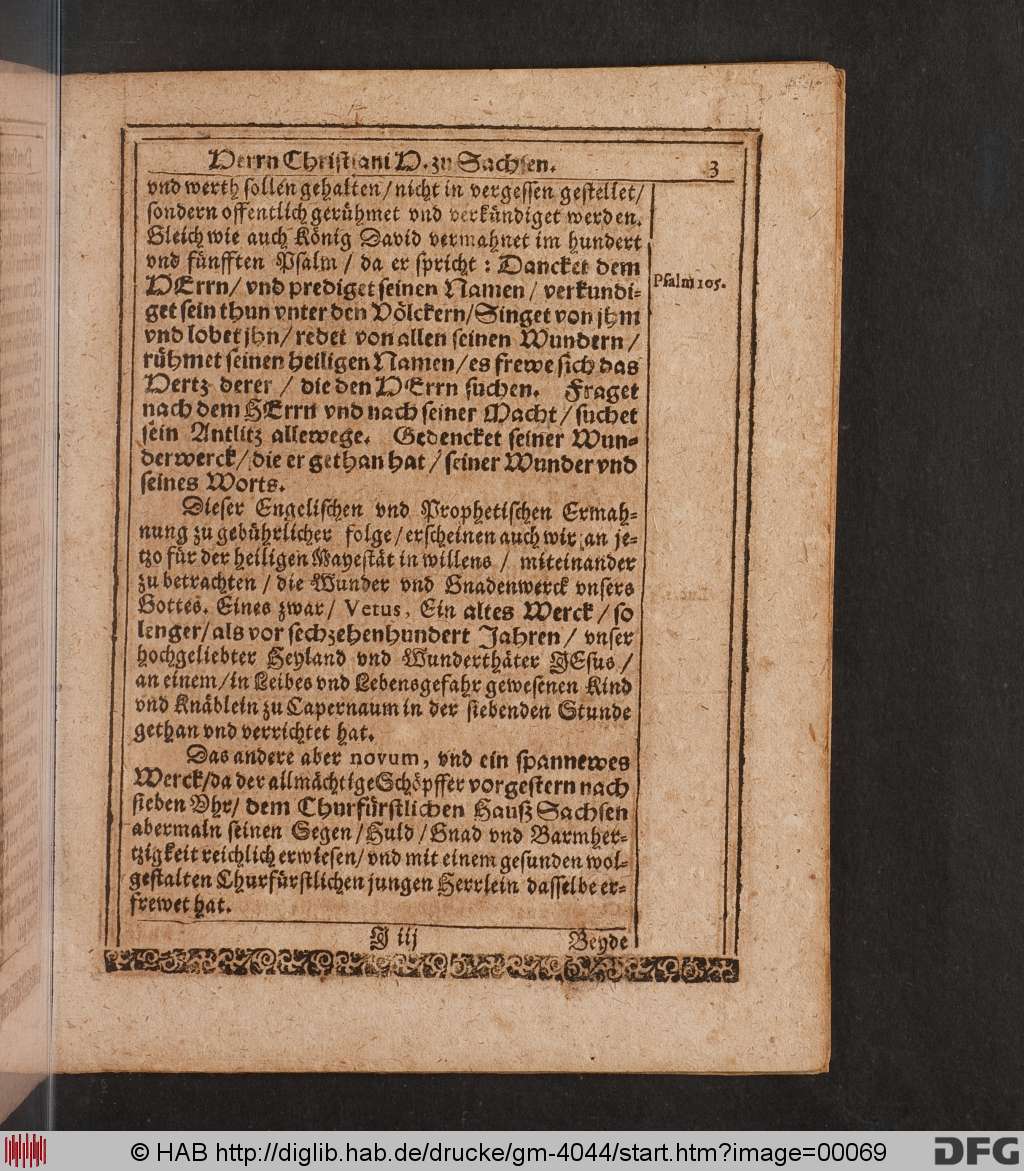 Herrn Christiani H. zu Sachsen. 3
vnd werth sollen gehalten/ nicht in vergessen gestellet/
sondern offentlich gerühmet vnd verkündiget werden.
Gleich wie auch König David vermahnet im hundert
vnd fünfften Psalm / da er spricht : Dancket dem
HErrn/ vnd prediget seinen Namen / verkundi-
get sein thun vnter den Völckern/ Singet von jhm
vnd lobet jhn/ redet von allen seinen Wundern /
rühmet seinen heiligen Namen/ es frewe sich das
Hertz derer / die den HErrn suchen. Fraget
nach dem HErrn vnd nach seiner Macht / suchet
sein Antlitz allewege. Gedencket seiner Wun-
derwerck/ die er gethan hat / seiner Wunder vnd
seines Worts.
Psalm 105.
Dieser Engelischen vnd Prophetischen Ermah-
nung zu gebührlicher folge/ erscheinen auch wir an je-
tzo für der heiligen Mayestät in willens / miteinander
zu betrachten / die Wunder vnd Gnadenwerck vnsers
Gottes. Eines zwar/ Vetus, Ein altes Werck / so
lenger/ als vor sechzehenhundert Jahren / vnser
hochgeliebter Heyland vnd Wunderthäter JEsus /
an einem/ in Leibes vnd Lebensgefahr gewesenen Kind
vnd Knäblein zu Capernaum in der siebenden Stunde
gethan vnd verrichtet hat.
Das andere aber novum, vnd ein spannewes
Werck/ da der allmächtige Schöpffer vorgestern nach
sieben Vhr/ dem Churfürstlichen Hauß Sachsen
abermaln seinen Segen / Huld / Gnad vnd Barmher-
tzigkeit reichlich erwiesen/ vnd mit einem gesunden wol-
gestalten Churfürstlichen jungen Herrlein dasselbe er-
frewet hat.
J iij Beyde
© HAB http://diglib.hab.de/drucke/gm-4044/start.htm?image=00069
DFG